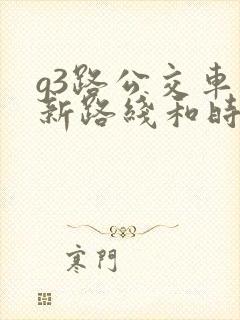 93路公交車
新路綫和時
寒門